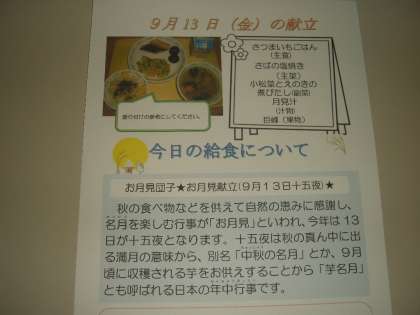 9月13日（金）の献立
さつまいもごはん
（主食）
さばの塩焼き
（主菜）
小松菜とえのきの
煮びたし（副菜）
月見汁
（汁物）
巨峰（果物）
盛り付けの参考にしてください。
今日の給食について
お月見団子★お月見献立（９月１３日十五夜）★
秋の食べ物などを供えて自然の恵みに感謝し、
名月を楽しむ行事が「お月見」といわれ、今年は13
日が十五夜となります。十五夜は秋の真ん中に出
る満月の意味から、別名「中秋の名月」とか、９月
頃に収穫される芋をお供えすることから「芋名月」
とも呼ばれる日本の年中行事です。